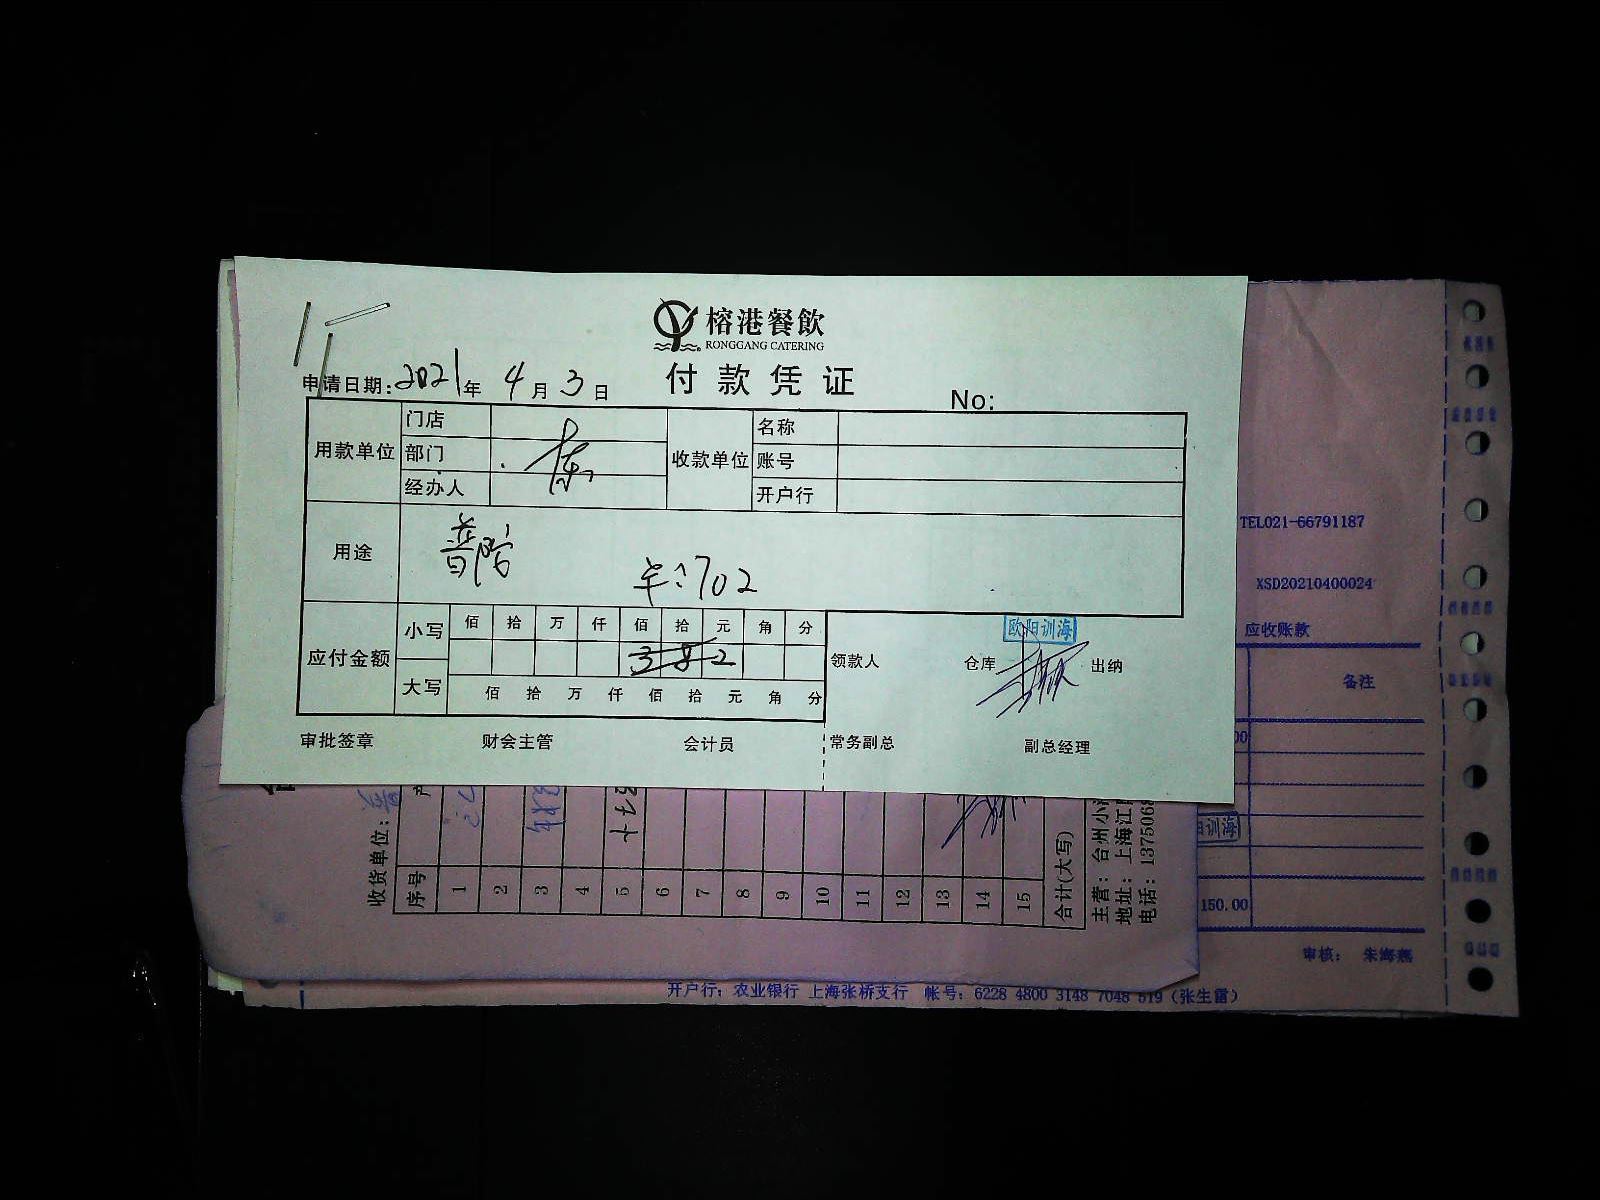 榕港餐飲
RONGGANG CATERING
付款凭证
申请日期: 2021年 4月 3日
No:
用款单位 门店 部门 经办人
收款单位 名称 账号 开户行
用途 普陀
702
应付金额 小写 佰 拾 万 仟 佰 拾 元 角 分
382
大写 佰 拾 万 仟 佰 拾 元 角 分
领款人 仓库 出纳
欧阳训海
审批签章 财会主管 会计员 常务副总 副总经理
TEL021-66791187
XSD20210400024
应收账款
备注
00
训海
150.00
审核: 朱海燕
开户行: 农业银行 上海张桥支行 帐号: 6228 4800 3148 7048 519 (张生雷)
收货单位:
序号 产
1
2
3
4
5
6
7
8
9
10
11
12
13
14
15
合计(大写)
主营: 台州小
地址: 上海江
电话: 1375068